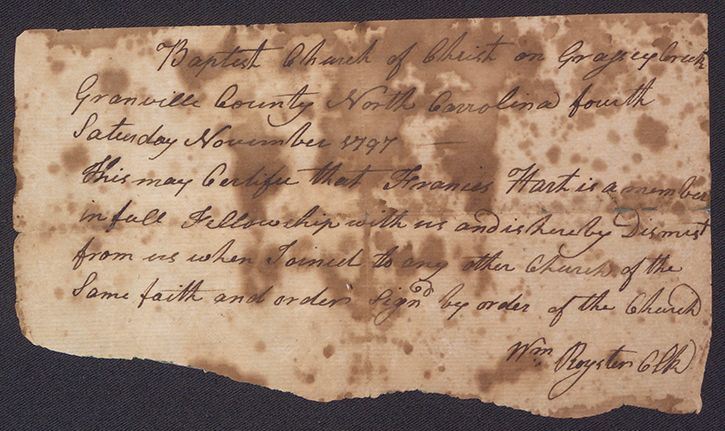 Baptist Church of Christ on Grassey Creek
Granville County North Carrolina fourth
Saturday November 1797
This may Certifie that Frances Hart is a member
in full Fellowship with us and is hereby Dismist
from us when Joined to any other Church of the
Same faith and order Signd by order of the Church
Wm Royster Clk